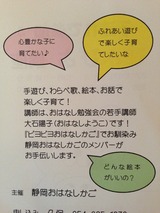 心豊かな子に
育てたい♪
ふれあい遊び
で楽しく子育
てしたいな
手遊び、わらべ歌、絵本、お話
で楽しく子育て！
講師は、おはなし勉強会の若手講師
大石陽子(おはなしようこ)です！
『ピヨピヨおはなしかご』でお馴染み
静岡おはなしかごのメンバーが
お手伝いします。
どんな絵本
がいいの？
主催 静岡おはなしかご